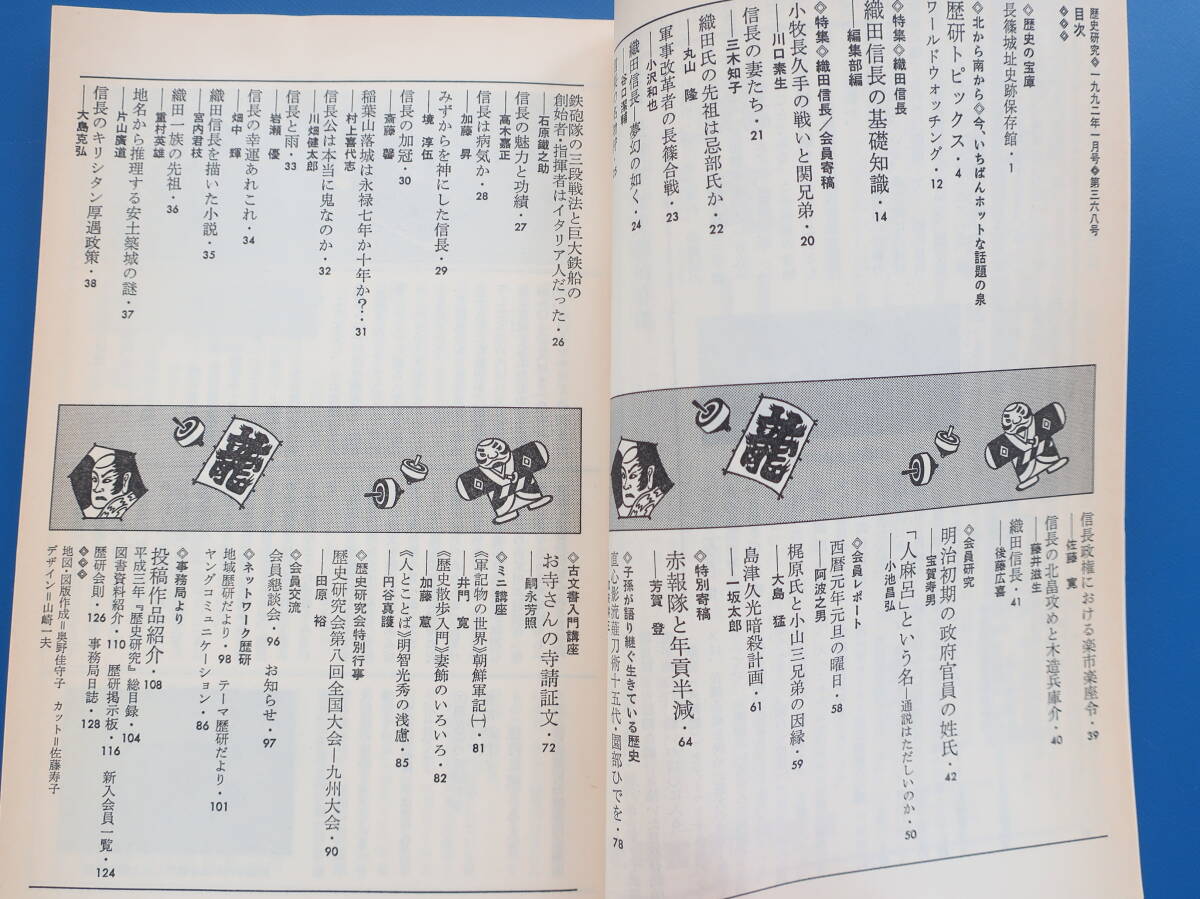 歴史研究◇一九九二年一月号◆第三六八号
目次
◇◇◇
◇歴史の宝庫
長篠城址史跡保存館・1
◇北から南から◇今、いちばんホットな話題の泉
歴研トピックス・4
ワールドウォッチング・12
◇特集◇織田信長
織田信長の基礎知識・14
──編集部編
◇特集◇織田信長/会員寄稿
小牧長久手の戦いと関兄弟・20
──川口素生
信長の妻たち・21
──三木知子
織田氏の先祖は忌部氏か・22
──丸山 隆
軍事改革者の長篠合戦・23
──小沢和也
織田信長―夢幻の如く・24
──谷口潔
鉄砲隊の三段戦法と巨大鉄船の
創始者・指揮者はイタリア人だった・26
──石原鐵之助
信長の魅力と功績・27
──高木嘉正
信長は病気か・28
──加藤 昇
みずからを神にした信長・29
──境 淳伍
信長の加冠・30
──斎藤 馨
稲葉山落城は永禄七年か十年か?・31
──村上喜代志
信長公は本当に鬼なのか・32
──川畑健太郎
信長と雨・33
──岩瀬 優
信長の幸運あれこれ・34
──畑中 輝
織田信長を描いた小説・35
──宮内君枝
織田一族の先祖・36
──重村英雄
地名から推理する安土築城の謎・37
──片山廣道
信長のキリシタン厚遇政策・38
──大島克弘
龍
龍
信長政権における楽市楽座令・39
──佐藤 寛
信長の北畠攻めと木造兵庫介・40
──藤井滋生
織田信長・41
──後藤広喜
◇会員研究
明治初期の政府官員の姓氏・42
──宝賀寿男
「人麻呂」という名―通説はただしいのか・50
──小池昌弘
◇会員レポート
西暦元年元旦の曜日・58
──阿波之男
梶原氏と小山三兄弟の因縁・59
──大島 猛
島津久光暗殺計画・61
──一坂太郎
◇特別寄稿
赤報隊と年貢半減・64
──芳賀 登
◇子孫が語り継ぐ生きている歴史
直心影流薙刀術十五代・園部ひでを・78
◇古文書入門講座
お寺さんの寺請証文・72
──嗣永芳照
◇ミニ講座
《軍記物の世界》朝鮮軍記㈠・81
──井門 寛
《歴史散歩入門》妻飾のいろいろ・82
──加藤 蕙
《人とことば》明智光秀の浅慮・85
──円谷真護
◇歴史研究会特別行事
歴史研究会第八回全国大会―九州大会・90
──田原 裕
◇会員交流
会員懇談会・96 お知らせ・97
◇ネットワーク歴研
地域歴研だより・98 テーマ歴研だより・101
ヤングコミュニケーション・86
◇事務局より
投稿作品紹介・108
平成三年『歴史研究』総目録・104
図書資料紹介・110 歴研掲示板・116 新入会員一覧・124
歴研会則・126 事務局日誌・128
◇◇◇
地図・図版作成=奥野佳守子 カット=佐藤寿子
デザイン=山崎一夫